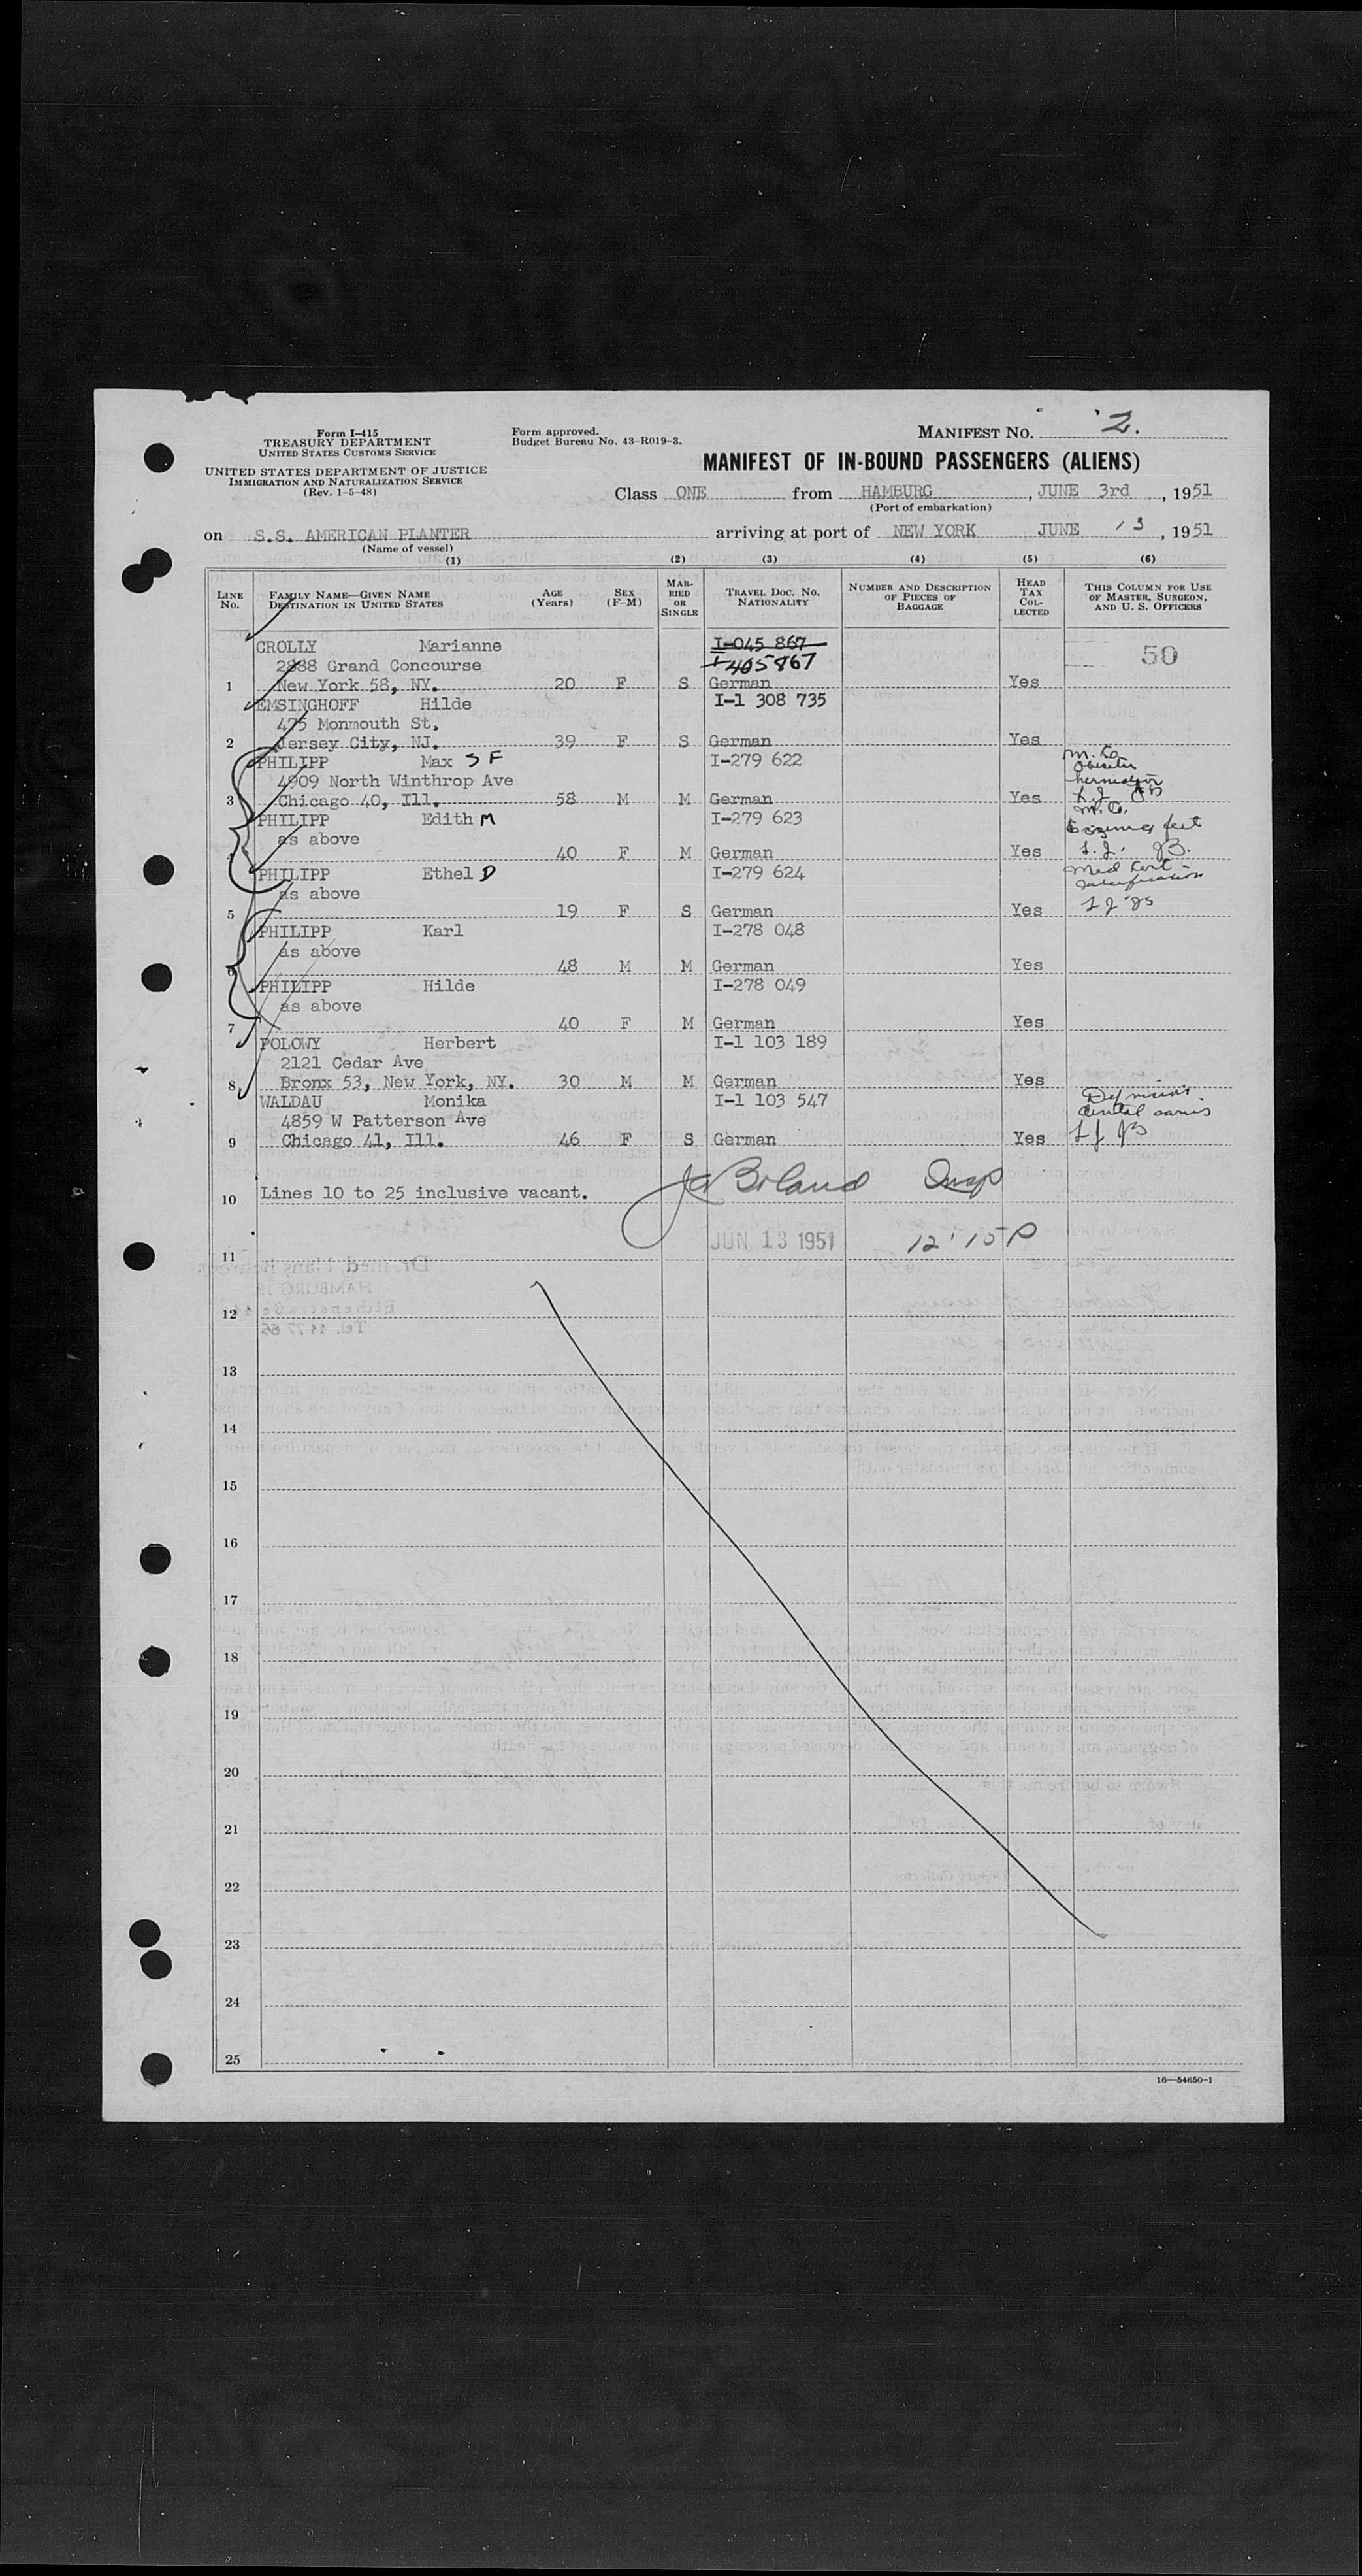 Form I-415
TREASURY DEPARTMENT
UNITED STATES CUSTOMS SERVICE
UNITED STATES DEPARTMENT OF JUSTICE
IMMIGRATION AND NATURALIZATION SERVICE
(Rev. 1-5-48)
Form approved.
Budget Bureau No. 43-R019-3.
MANIFEST NO. 2.
MANIFEST OF IN-BOUND PASSENGERS (ALIENS)
Class ONE from HAMBURG, JUNE 3rd, 1951
(Port of embarkation)
on S.S. AMERICAN PLANTER arriving at port of NEW YORK JUNE 13, 1951
(Name of vessel)
(1) (2) (3) (4) (5) (6)
LINE No. FAMILY NAME—GIVEN NAME DESTINATION IN UNITED STATES AGE (Years) SEX (F-M) MARRIED OR SINGLE TRAVEL DOC. NO. NATIONALITY NUMBER AND DESCRIPTION OF PIECES OF BAGGAGE HEAD TAX COLLECTED THIS COLUMN FOR USE OF MASTER, SURGEON, AND U. S. OFFICERS
CROLLY Marianne I-045 867 50
2888 Grand Concourse 405867
1 New York 58, NY. 20 F S German Yes
EMSINGHOFF Hilde I-1 308 735
475 Monmouth St.
2 Jersey City, NJ. 39 F S German Yes
PHILIPP Max SF I-279 622 M. Co
4909 North Winthrop Ave
3 Chicago 40, Ill. 58 M M German Yes
PHILIPP Edith M I-279 623 M.C.
as above feet
4 40 F M German Yes L.J. JB.
PHILIPP Ethel D I-279 624 Med Cert
as above
5 19 F S German Yes
PHILIPP Karl I-278 048
as above
6 48 M M German Yes
PHILIPP Hilde I-278 049
as above
7 40 F M German Yes
POLOWY Herbert I-1 103 189
2121 Cedar Ave
8 Bronx 53, New York, NY. 30 M M German Yes
WALDAU Monika I-1 103 547 Def vision
4859 W Patterson Ave dental caries
9 Chicago 41, Ill. 46 F S German Yes
10 Lines 10 to 25 inclusive vacant. Boland Insp
11 JUN 13 1951 12:15P
12
13
14
15
16
17
18
19
20
21
22
23
24
25
16—54650-1